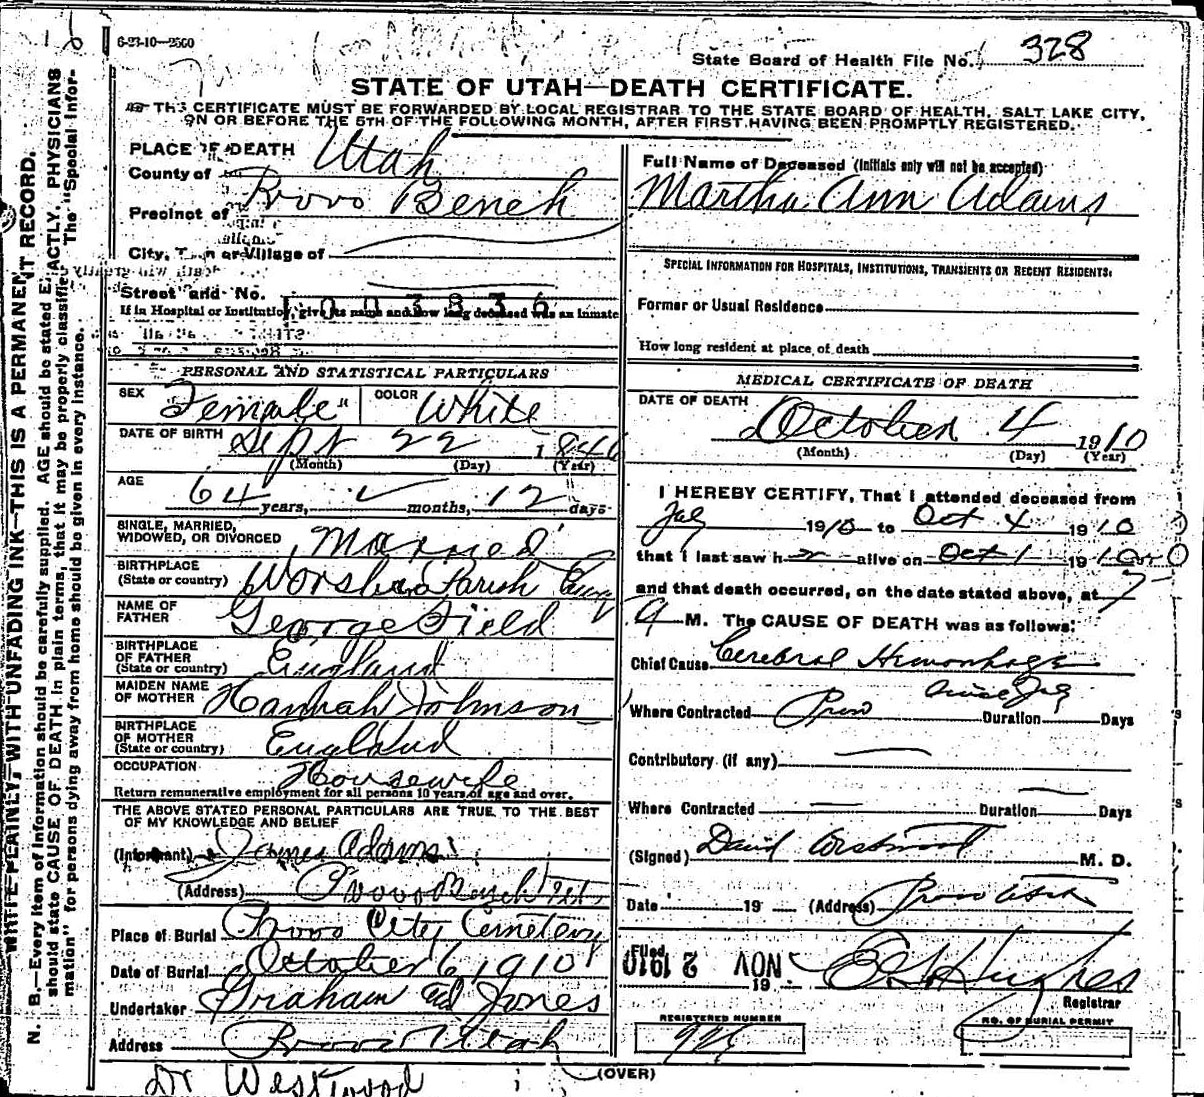 6-23-10—2500
State Board of Health File No. 328
STATE OF UTAH—DEATH CERTIFICATE.
THIS CERTIFICATE MUST BE FORWARDED BY LOCAL REGISTRAR TO THE STATE BOARD OF HEALTH, SALT LAKE CITY,
ON OR BEFORE THE 5TH OF THE FOLLOWING MONTH, AFTER FIRST HAVING BEEN PROMPTLY REGISTERED.
WRITE PLAINLY, WITH UNFADING INK—THIS IS A PERMANENT RECORD.
N. B.—Every item of information should be carefully supplied. AGE should be stated EXACTLY. PHYSICIANS
should state CAUSE OF DEATH in plain terms, that it may be properly classified. The "Special Infor-
mation" for persons dying away from home should be given in every instance.
PLACE OF DEATH
County of Utah
Precinct of Provo Bench
City, Town or Village of
Street and No.
003836
If in Hospital or Institution, give its name and how long deceased was an inmate
PERSONAL AND STATISTICAL PARTICULARS
SEX Female COLOR White
DATE OF BIRTH Sept 22 1846
(Month) (Day) (Year)
AGE 64 years, months, 12 days
SINGLE, MARRIED,
WIDOWED, OR DIVORCED Married
BIRTHPLACE
(State or country) Parish
NAME OF
FATHER George Field
BIRTHPLACE
OF FATHER
(State or country) England
MAIDEN NAME
OF MOTHER Hannah Johnson
BIRTHPLACE
OF MOTHER
(State or country) England
OCCUPATION Housewife
Return remunerative employment for all persons 10 years of age and over.
THE ABOVE STATED PERSONAL PARTICULARS ARE TRUE TO THE BEST
OF MY KNOWLEDGE AND BELIEF
(Informant) James Adams
(Address) Provo Bench Ut.
Place of Burial Provo City Cemetery
Date of Burial October 6, 1910
Undertaker Graham Jones
Address Provo Utah
Dr Westwood
Full Name of Deceased (Initials only will not be accepted)
Martha Ann Adams
SPECIAL INFORMATION FOR HOSPITALS, INSTITUTIONS, TRANSIENTS OR RECENT RESIDENTS:
Former or Usual Residence
How long resident at place of death
MEDICAL CERTIFICATE OF DEATH
DATE OF DEATH
October 4 1910
(Month) (Day) (Year)
I HEREBY CERTIFY, That I attended deceased from
1910 to Oct 4 1910
that I last saw h alive on Oct 1 1910
and that death occurred, on the date stated above, at 7
A M. The CAUSE OF DEATH was as follows:
Chief Cause Cerebral Hemorrhage
Where Contracted Provo Duration Days
Contributory (if any)
Where Contracted Duration Days
(Signed) David Westwood M. D.
Date 19 (Address) Provo Utah
Filed NOV 2 1910 19 Hughes
Registrar
REGISTERED NUMBER
NO. OF BURIAL PERMIT
(OVER)